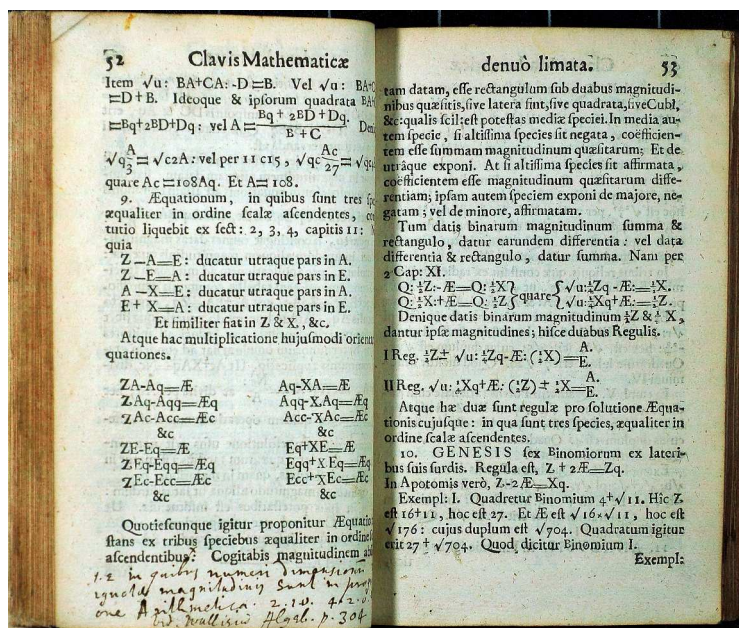 52 Clavis Mathematicæ
Item √u: BA+CA: -D=B. Vel √u: BA+C
=D+B. Ideoque & ipsorum quadrata BA+
=Bq+2BD+Dq: vel A= Bq+2BD+Dq. / B+C Deni
√q A/3 = √c2A: vel per 11 c15, √qc Ac/27 = √q
quare Ac=108Aq. Et A=108.
9. Æquationum, in quibus sunt tres spe
æqualiter in ordine scalæ ascendentes, co
tutio liquebit ex sect: 2, 3, 4, capitis 11:
quia
Z—A=E: ducatur utraque pars in A.
Z—E=A: ducatur utraque pars in E.
A—X=E: ducatur utraque pars in A.
E+X=A: ducatur utraque pars in E.
Et similiter fiat in Z & X, &c.
Atque hac multiplicatione hujusmodi oriun
quationes.
ZA-Aq=Æ Aq-XA=Æ
ZAq-Aqq=Æq Aqq-XAq=Æq
ZAc-Acc=Æc Acc-XAc=Æc
&c &c
ZE-Eq=Æ Eq+XE=Æ
ZEq-Eqq=Æq Eqq+XEq=Æq
ZEc-Ecc=Æc Ecc+XEc=Æc
&c &c
Quotiescunque igitur proponitur Æquatio
stans ex tribus speciebus æqualiter in ordine
ascendentibus: Cogitabis magnitudinem ab
in quibus numeri dimensionu
magnitudinis sunt in
one Arithmetica. 4. 2. 0.
vid. Wallisiu Algeb. p. 304
denuò limata. 53
tam datam, esse rectangulum sub duabus magnitudi-
nibus quæsitis, sive latera sint, sive quadrata, sive Cubi,
&c: qualis scil: est potestas mediæ speciei. In media au-
tem specie, si altissima species sit negata, coëfficien-
tem esse summam magnitudinum quæsitarum: Et de
utrâque exponi. At si altissima species sit affirmata,
coëfficientem esse magnitudinum quæsitarum diffe-
rentiam; ipsam autem speciem exponi de majore, ne-
gatam; vel de minore, affirmatam.
Tum datis binarum magnitudinum summa &
rectangulo, datur earundem differentia: vel data
differentia & rectangulo, datur summa. Nam per
2 Cap: XI.
Q: ½Z:-Æ=Q: ½X } quare { √u:½Zq-Æ:=½X.
Q: ½X:+Æ=Q: ½Z } { √u:½Xq+Æ:=½Z.
Denique datis binarum magnitudinum ½Z & ½X,
dantur ipsæ magnitudines; hisce duabus Regulis.
I Reg. ½Z± √u: ¼Zq-Æ: (½X)= A. E.
II Reg. √u: ¼Xq+Æ: (½Z) ± ½X= A. E.
Atque hæ duæ sunt regulæ pro solutione Æqua-
tionis cujusque: in qua sunt tres species, æqualiter in
ordine scalæ ascendentes.
10. GENESIS sex Binomiorum ex lateri-
bus suis surdis. Regula est, Z+2Æ=Zq.
In Apotomis verò, Z-2Æ=Xq.
Exempl: I. Quadretur Binomium 4+√11. Hîc Z
est 16+11, hoc est 27. Et Æ est √16×√11, hoc est
√176: cujus duplum est √704. Quadratum igitur
erit 27+√704. Quod dicitur Binomium I.
Exempl: